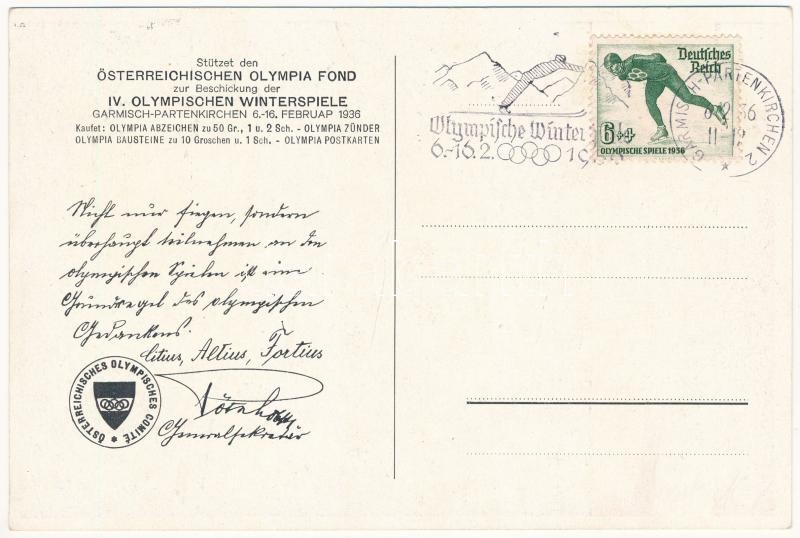 Stützet den
ÖSTERREICHISCHEN OLYMPIA FOND
zur Beschickung der
IV. OLYMPISCHEN WINTERSPIELE
GARMISCH-PARTENKIRCHEN 6.-16. FEBRUAP 1936
Kaufet: OLYMPIA ABZEICHEN zu 50 Gr., 1 u. 2 Sch. - OLYMPIA ZÜNDER
OLYMPIA BAUSTEINE zu 10 Groschen u. 1 Sch. - OLYMPIA POSTKARTEN
Nicht nur siegen, sondern
überhaupt teilnehmen an den
olympischen Spielen ist eine
Grundregel des olympischen
Gedankens.
Citius, Altius, Fortius
Generalsekretär
ÖSTERREICHISCHES OLYMPISCHES COMITÉ
Olympische Winter
6.-16.2. 19
Deutsches
Reich
6+4
OLYMPISCHE SPIELE 1936
GARMISCH-PARTENKIRCHEN 2
36
11